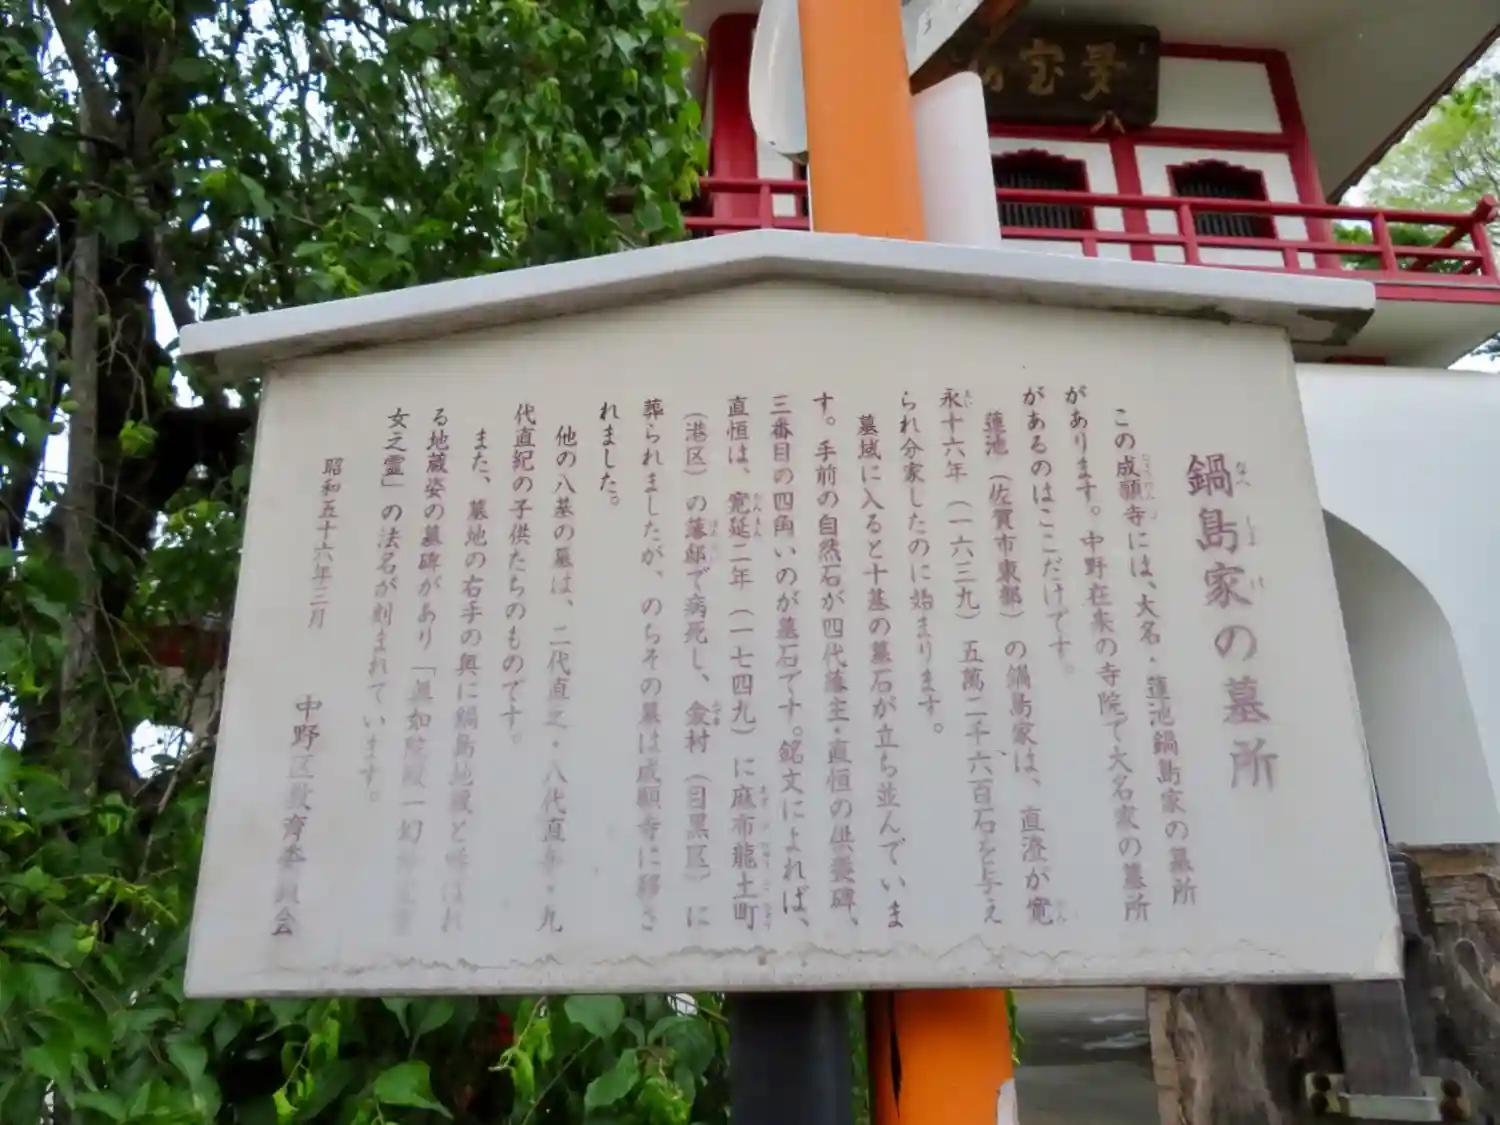 鍋島家の墓所
この成願寺には、大名・蓮池鍋島家の墓所
があります。中野在来の寺院で大名家の墓所
があるのはここだけです。
蓮池（佐賀市東部）の鍋島家は、直澄が寛
永十六年（一六三九）五萬二千六百石を与え
られ分家したのに始まります。
墓域に入ると十基の墓石が立ち並んでいま
す。手前の自然石が四代藩主・直恒の供養碑、
三番目の四角いのが墓石です。銘文によれば、
直恒は、寛延二年（一七四九）に麻布龍土町
（港区）の藩邸で病死し、衾村（目黒区）に
葬られましたが、のちその墓は成願寺に移さ
れました。
他の八基の墓は、二代直之・八代直与・九
代直紀の子供たちのものです。
また、墓地の右手の奥に鍋島地蔵と呼ばれ
る地蔵姿の墓碑があり「真如院殿一幻
女之霊」の法名が刻まれています。
昭和五十六年三月
中野区教育委員会